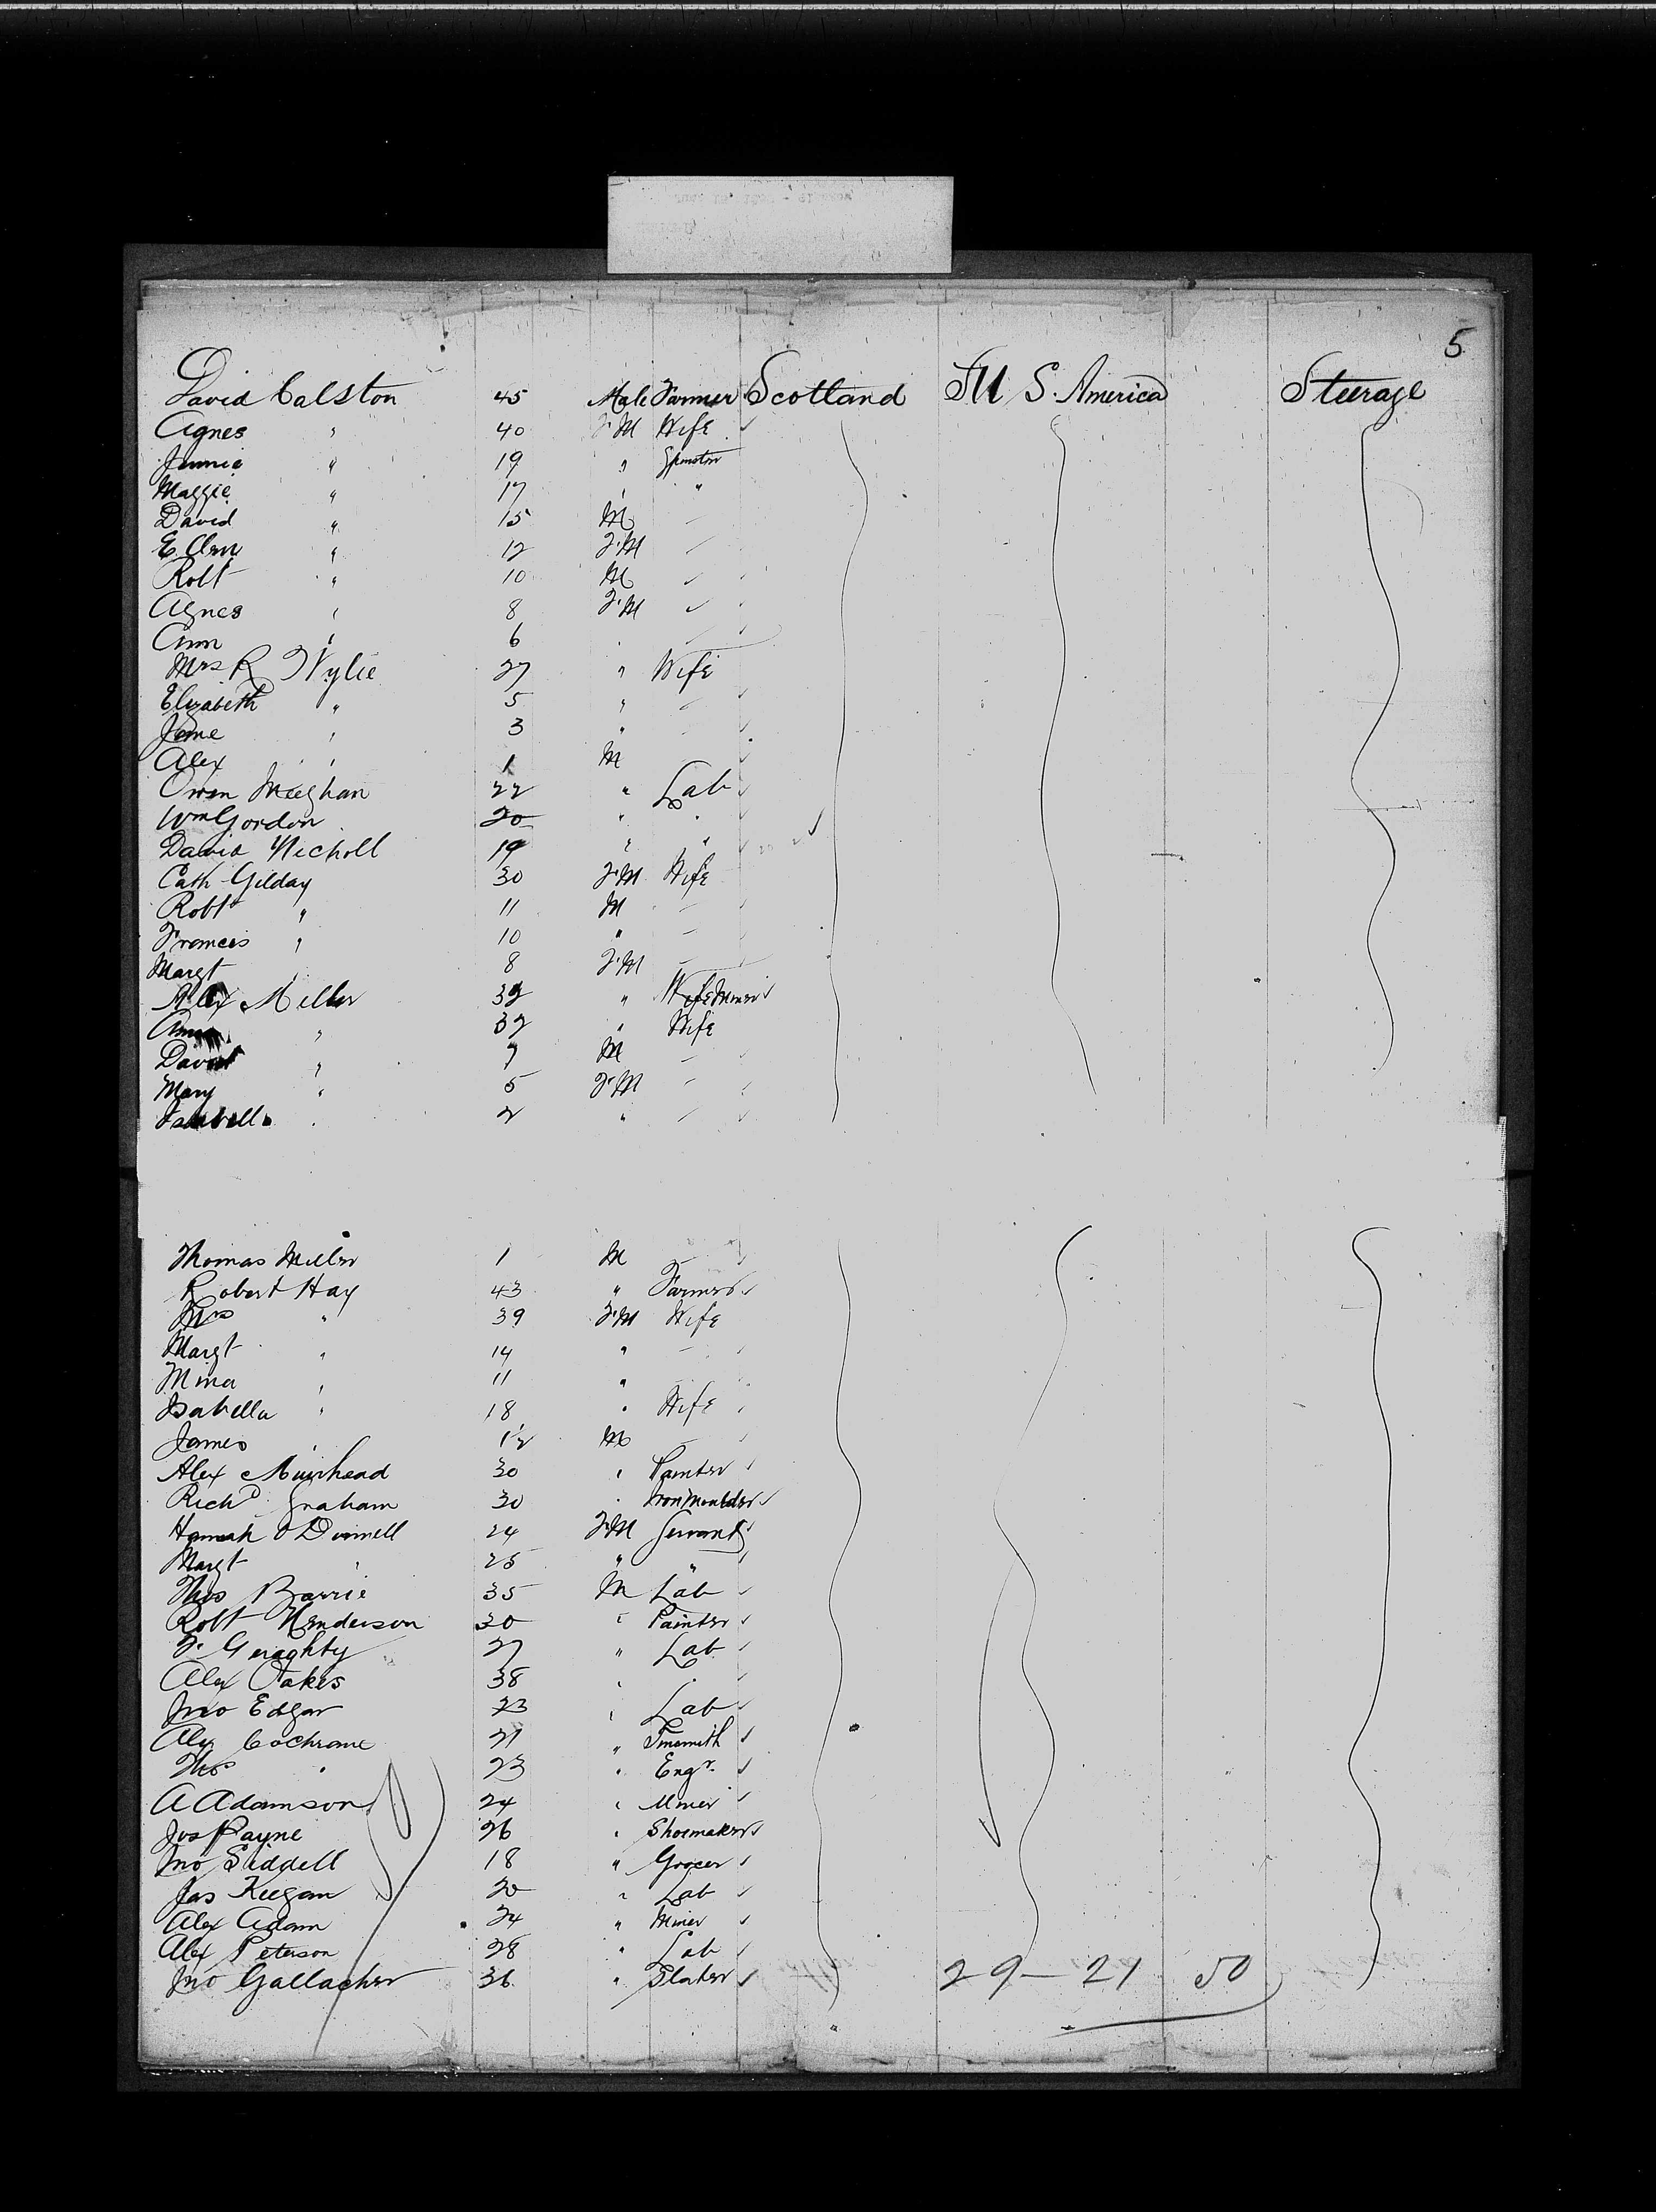 5
David Calston 45 Male Farmer Scotland U S. America Steerage
Agnes " 40 F.M Wife
Jennie " 19 " Spinster
Maggie " 17 " "
David " 15 M
Ellen " 12 F.M
Robt " 10 M
Agnes " 8 F.M
Ann " 6
Mrs R Wylie 27 " Wife
Elizabeth " 5 "
Jane " 3 "
Alex " 1 M
Owen Meeghan 22 " Lab
Wm Gordon 20 " "
David Nicholl 19 " "
Cath Gilday 30 F.M Wife
Robt " 11 M
Francis " 10 "
Margt 8 F.M
Alex Miller 32 " Wife Miner
Ann " 32 " Wife
David " 7 M
Mary " 5 F.M
Isabella 2 "
Thomas Miller 1 M
Robert Hay 43 " Farmer
Mrs " 39 F.M Wife
Margt " 14 "
Mina " 11 "
Isabella " 18 " Wife
James 12 M
Alex Muirhead 30 " Painter
Richd Graham 30 " Iron Moulder
Hannah O Donnell 24 F.M Servant
Margt " 25 " "
Thos Barrie 35 M Lab
Robt Henderson 30 " Painter
F. Geraghty 27 " Lab
Alex Oakes 38 " "
Jno Edgar 23 " Lab
Alex Cochrane 21 " Tinsmith
Thos " 23 " Engr.
A Adamson 24 " Miner
Jos Payne 26 " Shoemaker
Jno Siddell 18 " Grocer
Jas Keegan 20 " Lab
Alex Adam 24 " Miner
Alex Peterson 28 " Lab
Jno Gallacher 36 " Slater 29 - 21 50